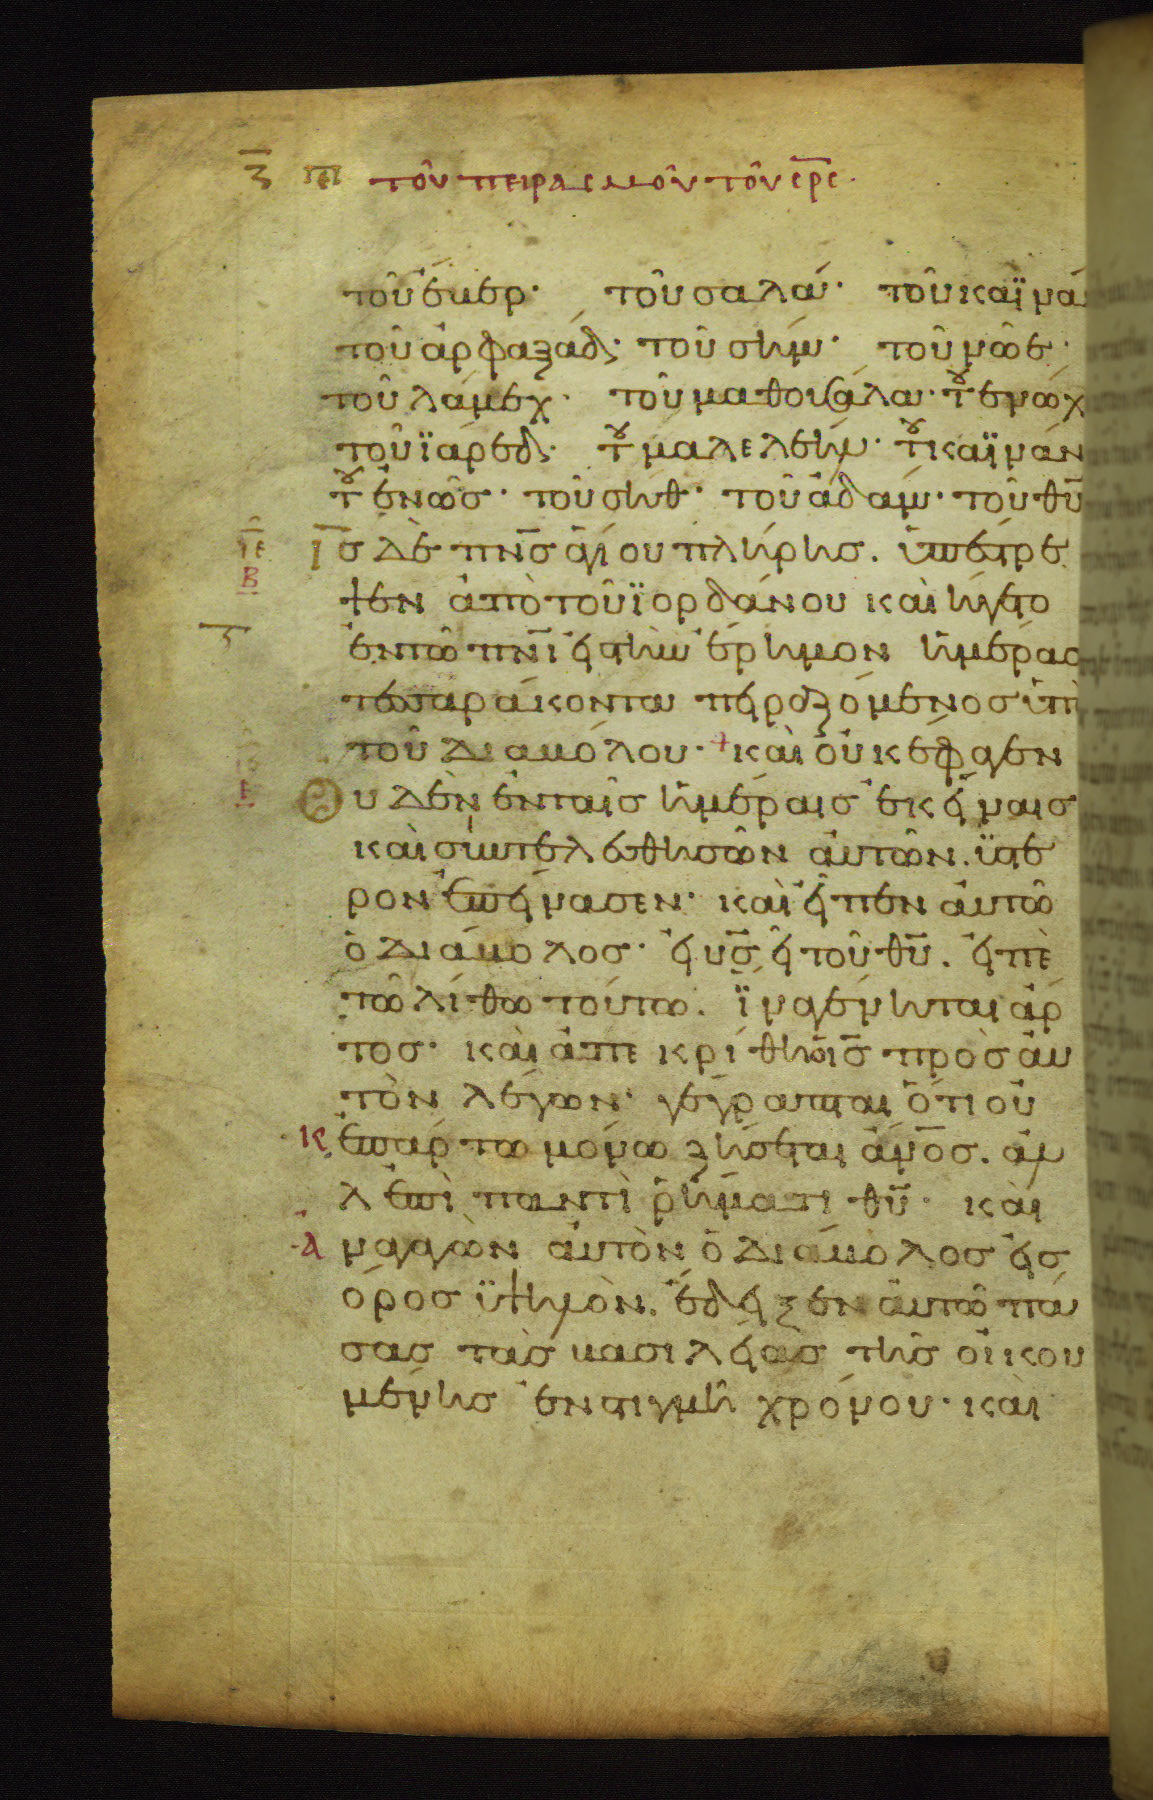 ζ πε τοῦ πειρασμοῦ τοῦ σρς
τοῦ ἕβερ· τοῦ σαλά· τοῦ καϊνά
τοῦ ἀρφαξάδ· τοῦ σήμ· τοῦ νῶε·
τοῦ λάμεχ· τοῦ μαθουσάλα· τοῦ ενώχ
τοῦ ϊάρεδ· τοῦ μαλελεήμ· τοῦ καϊνάν
τοῦ ἐνῶς· τοῦ σήθ· τοῦ ἀδάμ· τοῦ θυ
ιε ις δὲ πνς ἁγίου πλήρης. ὑπέστρε
β
ψεν ἀπὸ τοῦ ϊορδάνου καὶ ἤγετο
ζ
ἐν τῶ πνι εἰς τὴν ἔρημον ἡμέρας
τεσσαράκοντα πειραζόμενος ὑπὸ
τοῦ διαβόλου· + καὶ οὐκ ἔφαγεν
ε
οὐδὲν ἐν ταῖς ἡμέραις ἐκείναις
καὶ συντελεσθησῶν αὐτῶν. ὕστε
ρον ἐπείνασεν· καὶ εἶπεν αὐτῶ
ὁ διάβολος· εἰ υς εἶ τοῦ θυ. εἰπὲ
τῶ λίθω τούτω. ἵνα γένηται ἄρ
τος· καὶ ἀπεκρίθη ὁ ις πρὸς αὐ
τὸν λέγων· γέγραπται ὅτι οὐ
κ ἐπ ἄρτω μόνω ζήσεται ἄνος. ἀλ
λ ἐπὶ παντὶ ῥήματι θυ· καὶ
ἀναγαγὼν αὐτὸν ὁ διάβολος εἰς
ὄρος ὑψηλὸν. ἔδειξεν αὐτῶ πά
σας τὰς βασιλείας τῆς οἰκου
μένης ἐν στιγμῆ χρόνου· καὶ